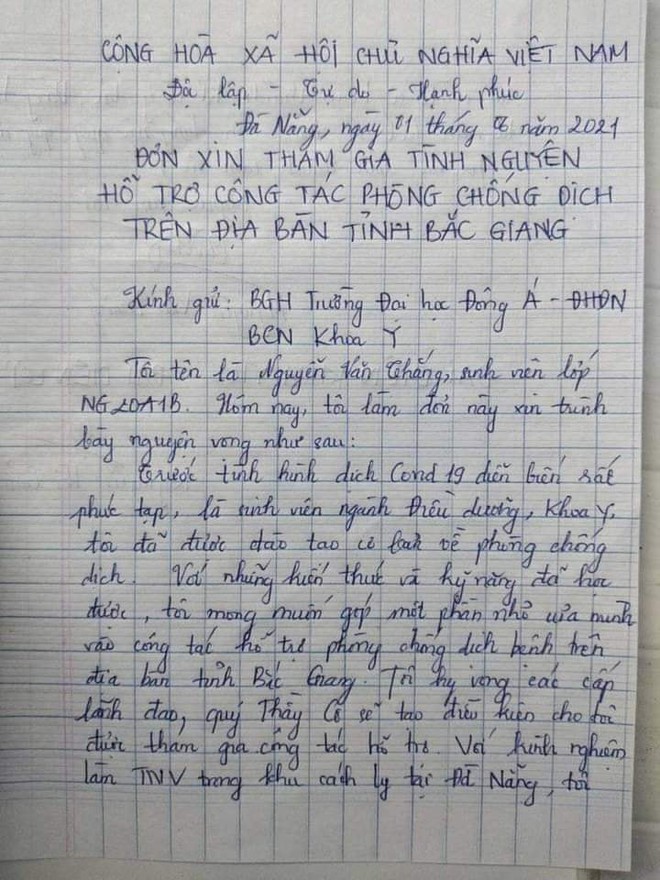 CỘNG HOÀ XÃ HỘI CHỦ NGHĨA VIỆT NAM
Độc lập - Tự do - Hạnh phúc
Đà Nẵng, ngày 01 tháng 06 năm 2021
ĐƠN XIN THAM GIA TÌNH NGUYỆN
HỖ TRỢ CÔNG TÁC PHÒNG CHỐNG DỊCH
TRÊN ĐỊA BÀN TỈNH BẮC GIANG
Kính gửi: BGH Trường Đại học Đông Á - ĐHĐN
BCN Khoa Y
Tôi tên là Nguyễn Văn Thắng, sinh viên lớp
NG20A1B. Hôm nay, tôi làm đơn này xin trình
bày nguyện vọng như sau:
Trước tình hình dịch Covid 19 diễn biến rất
phức tạp, là sinh viên ngành Điều dưỡng, Khoa Y,
tôi đã được đào tạo cơ bản về phòng chống
dịch. Với những kiến thức và kỹ năng đã học
được, tôi mong muốn góp một phần nhỏ của mình
vào công tác hỗ trợ phòng chống dịch bệnh trên
địa bàn tỉnh Bắc Giang. Tôi hy vọng các cấp
lãnh đạo, quý Thầy Cô sẽ tạo điều kiện cho tôi
được tham gia công tác hỗ trợ. Với kinh nghiệm
làm TNV trong khu cách ly tại Đà Nẵng, tôi